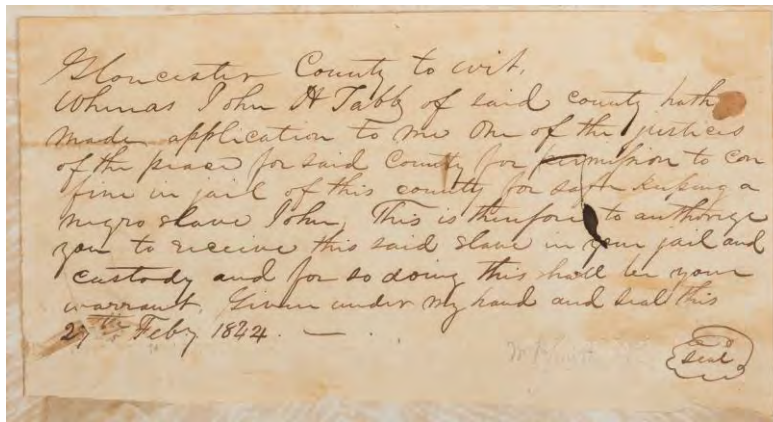 Gloucester County to wit,
Whereas John H Tabb of said county hath
made application to me One of the justices
of the peace for said County for permission to con
fine in jail of this county for safe keeping a
negro slave John, This is therefore to authorize
you to receive this said slave in your jail and
custody and for so doing this shall be your
warrant. Given under my hand and seal this
27th Feby 1844.
Seal